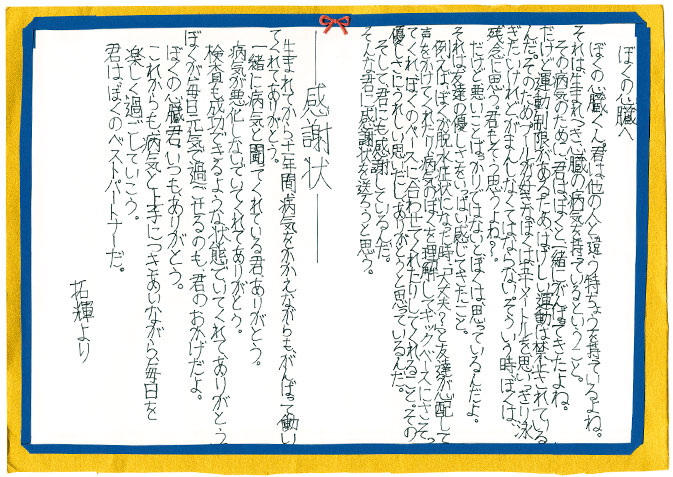 ぼくの心臓へ
ぼくの心臓くん。君は他の人と違う特ちょうを持っているよね。
それは生まれつき心臓の病気を持っているということ。
その病気のために、君はぼくと一緒にがんばってきたよね。
だけど運動制限があるためはげしい運動は禁止されている
んだ。そのためプールが好きなぼくは五十メートルを思いっきり泳
ぎたいけれどがまんしなくてはならない。そういう時、ぼくは、
残念に思う。君もそう思うよね?
だけど悪いことばっかりではないとぼくは思っているんだよ。
それは友達の優しさをいっぱい感じてきたこと。
例えばぼくが脱水症状になった時「大丈夫?」と友達が心配して
声をかけてくれたり病気のぼくを理解してキックベースにさそっ
てくれ、ぼくのペースに合わせてくれたりしてくれること。その
優しさにうれしい思いだし、ありがとうと思っているんだ。
そして君にも感謝しているんだ。
そんな君に感謝状を送ろうと思う。
――感謝状――
生まれてから十一年間病気をかかえながらも、がんばって働い
てくれてありがとう。
一緒に病気と闘てくれている君ありがとう。
病気が悪化しないでいてくれてありがとう。
検査も成功できるような状態でいてくれてありがとう。
ぼくが毎日元気で過ごせるのも君のおかげだよ。
ぼくの心臓君、いつもありがとう。
これからも病気と上手につきあいながら、毎日を
楽しく過ごしていこう。
君は、ぼくのベストパートナーだ。
拓輝より